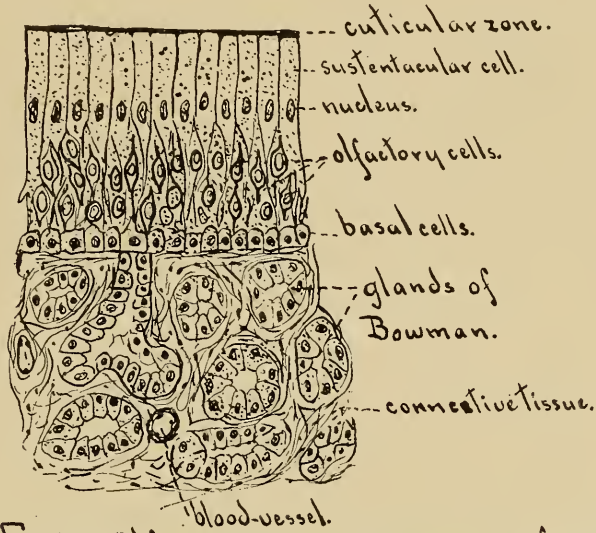 cuticular zone.
sustentacular cell.
nucleus.
olfactory cells.
basal cells.
glands of
Bowman.
connective tissue.
blood-vessel.